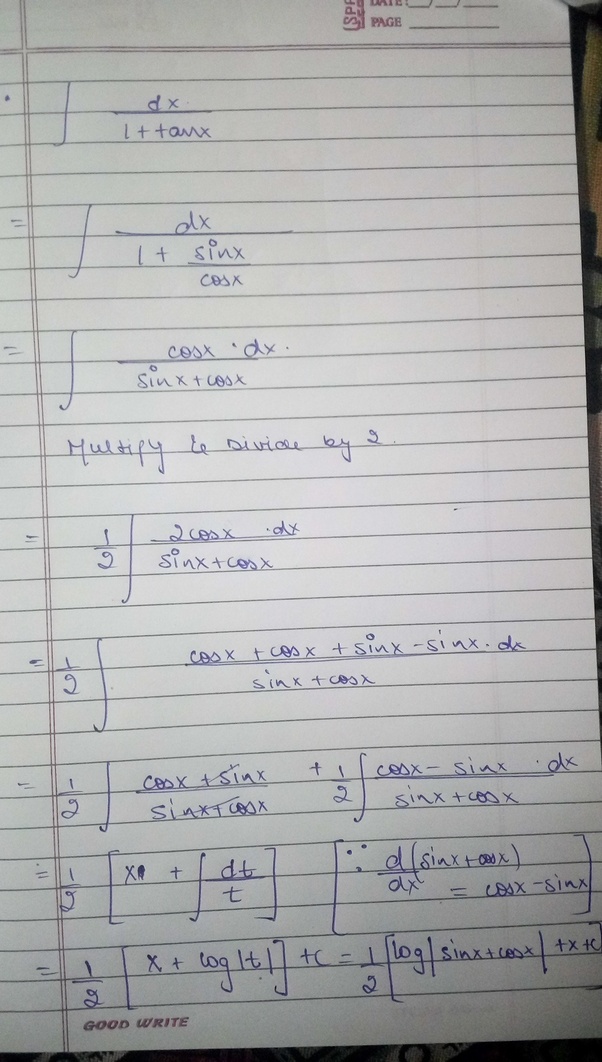 (SPP
DATE: __/__/__
PAGE
∫ dx / (1 + tanx)
= ∫ dx / (1 + sinx/cosx)
= ∫ cosx · dx. / (sinx + cosx)
Multiply & Divide by 2.
= 1/2 ∫ 2cosx · dx / (sinx + cosx)
= 1/2 ∫ (cosx + cosx + sinx - sinx · dx) / (sinx + cosx)
= 1/2 ∫ (cosx + sinx) / (sinx + cosx) + 1/2 ∫ (cosx - sinx · dx) / (sinx + cosx)
= 1/2 [x + ∫ dt/t] [∵ d/dx (sinx + cosx) = cosx - sinx]
= 1/2 [x + log|t|] + c = 1/2 [log|sinx + cosx| + x + c]
GOOD WRITE